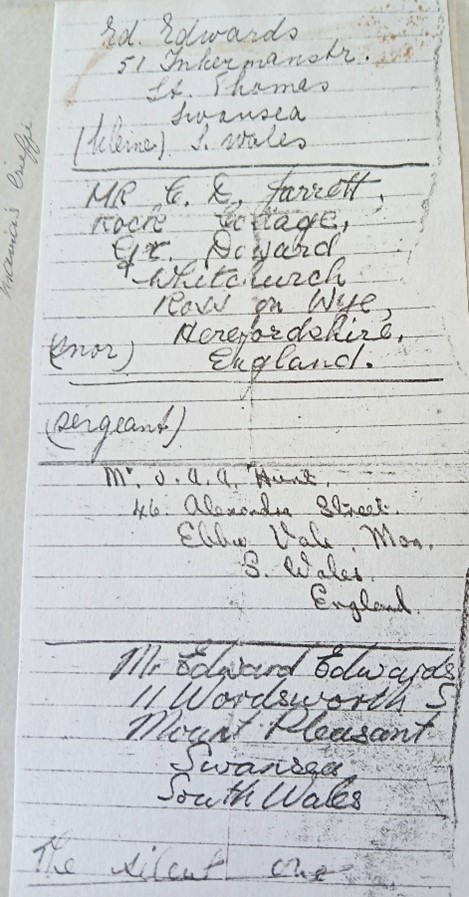 Ed. Edwards
51 Inkermanstr.
St. Thomas
Swansea
(kleine) S. Wales
MR C. E. Jarrett,
Rock Cottage,
Gt. Doward
Whitchurch
Ross on Wye,
Herefordshire,
(snor) England.
(Sergeant)
Mr. J. A. A. Hunt.
46. Alexandra Street.
Ebbw Vale. Mon.
S. Wales.
England.
Mr Edward Edwards
11 Wordsworth S
Mount Pleasant
Swansea
South Wales
The silent one
mama's